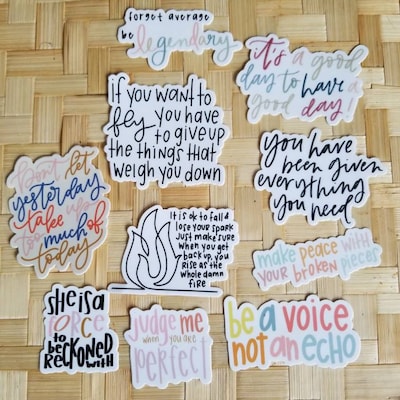 forget average
be legendary
it's a good
day to have a
good day!
if you want to
fly you have
to give up
the things that
weigh you down
you have
been given
everything
you need
Don't let
yesterday
take up
too much of
today
It is ok to fall &
lose your spark
Just make sure
when you get
back up, you
rise as the
whole damn
fire
make peace with
your broken pieces
she is a
force
to be
reckoned
with
judge me
when you are
perfect
be a voice
not an echo